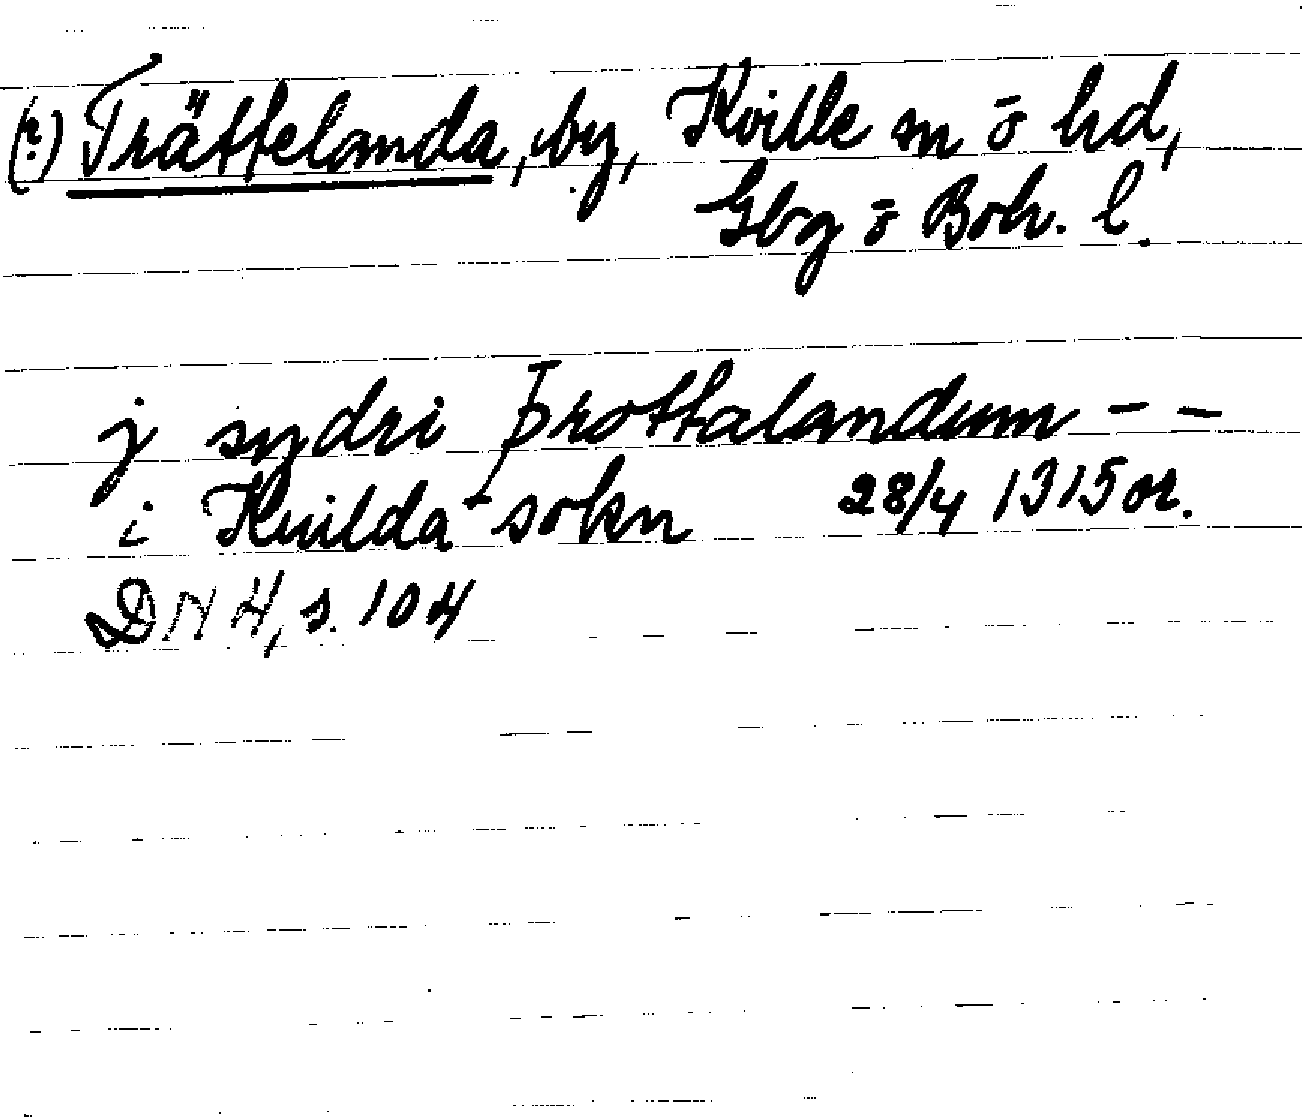 (?) Trättelanda, by, Kville sn o hd,
Gbg o Boh. l.
j sydri þrottalandum - -
i Huilda sokn 28/4 1315 or.
DN 4, s. 104